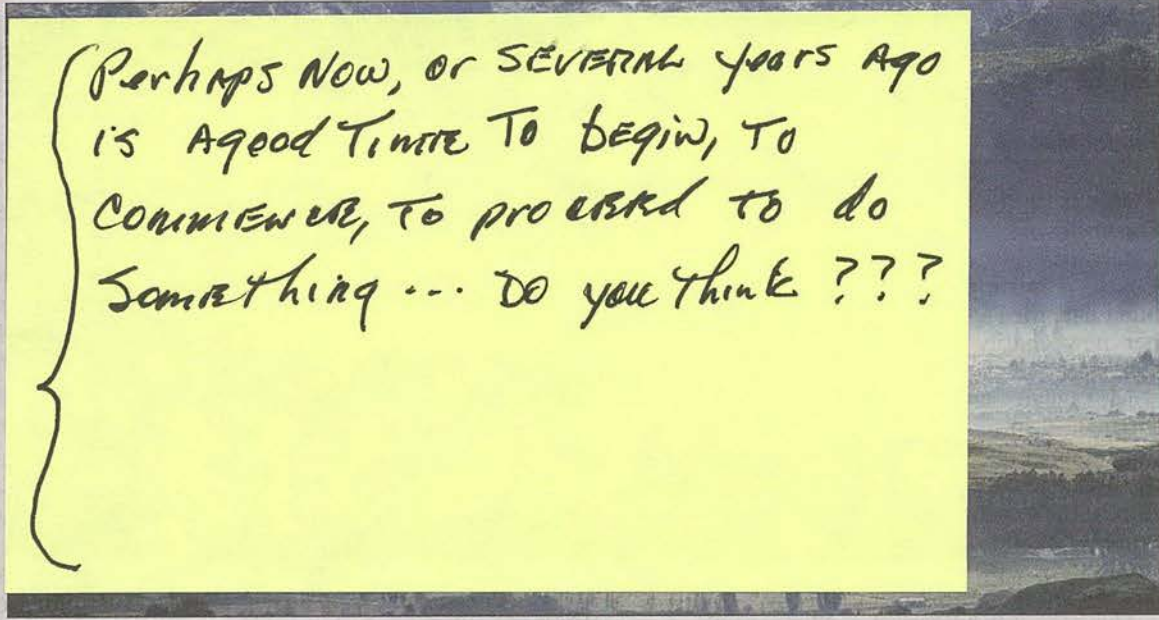 Perhaps Now, or SEVERAL years Ago
is Agood Time To begin, To
Commence, To proceed to do
Something ... Do you think ???